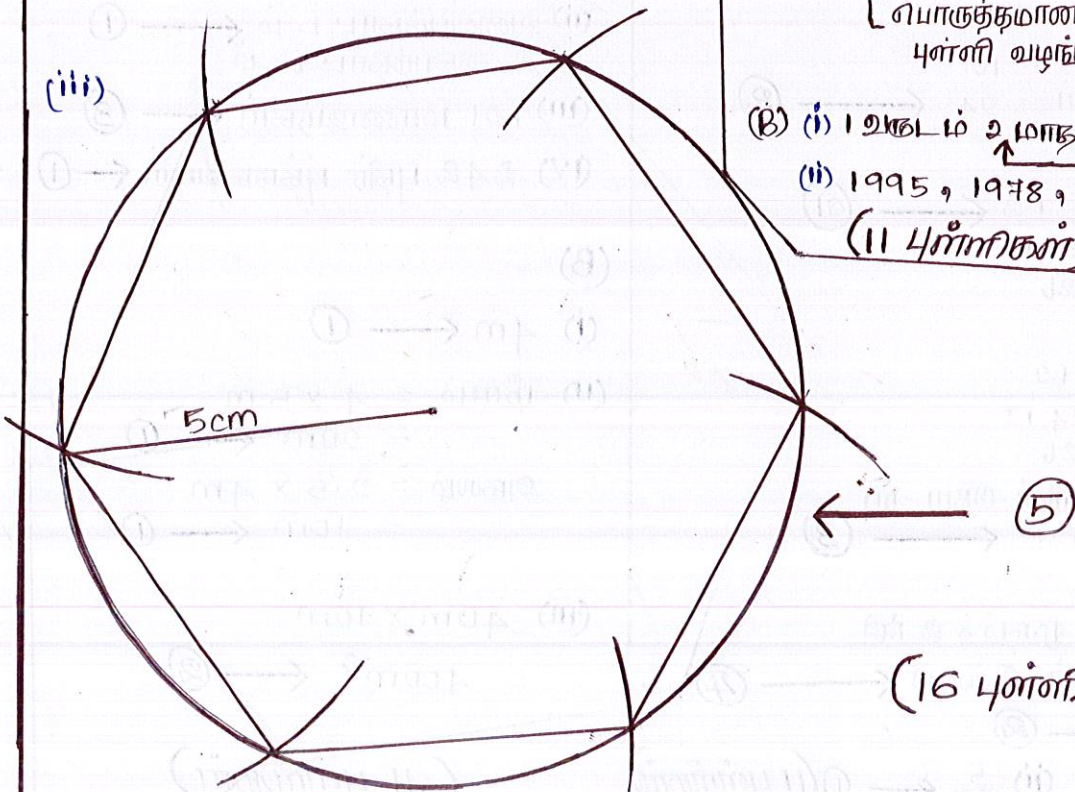 (iii)
5cm
பொருத்தமான
புள்ளி வழங்
(B) (i) 1 வருடம் 2 மாத
(ii) 1995, 1978,
(11 புள்ளிகள்
5
(16 புள்ளி